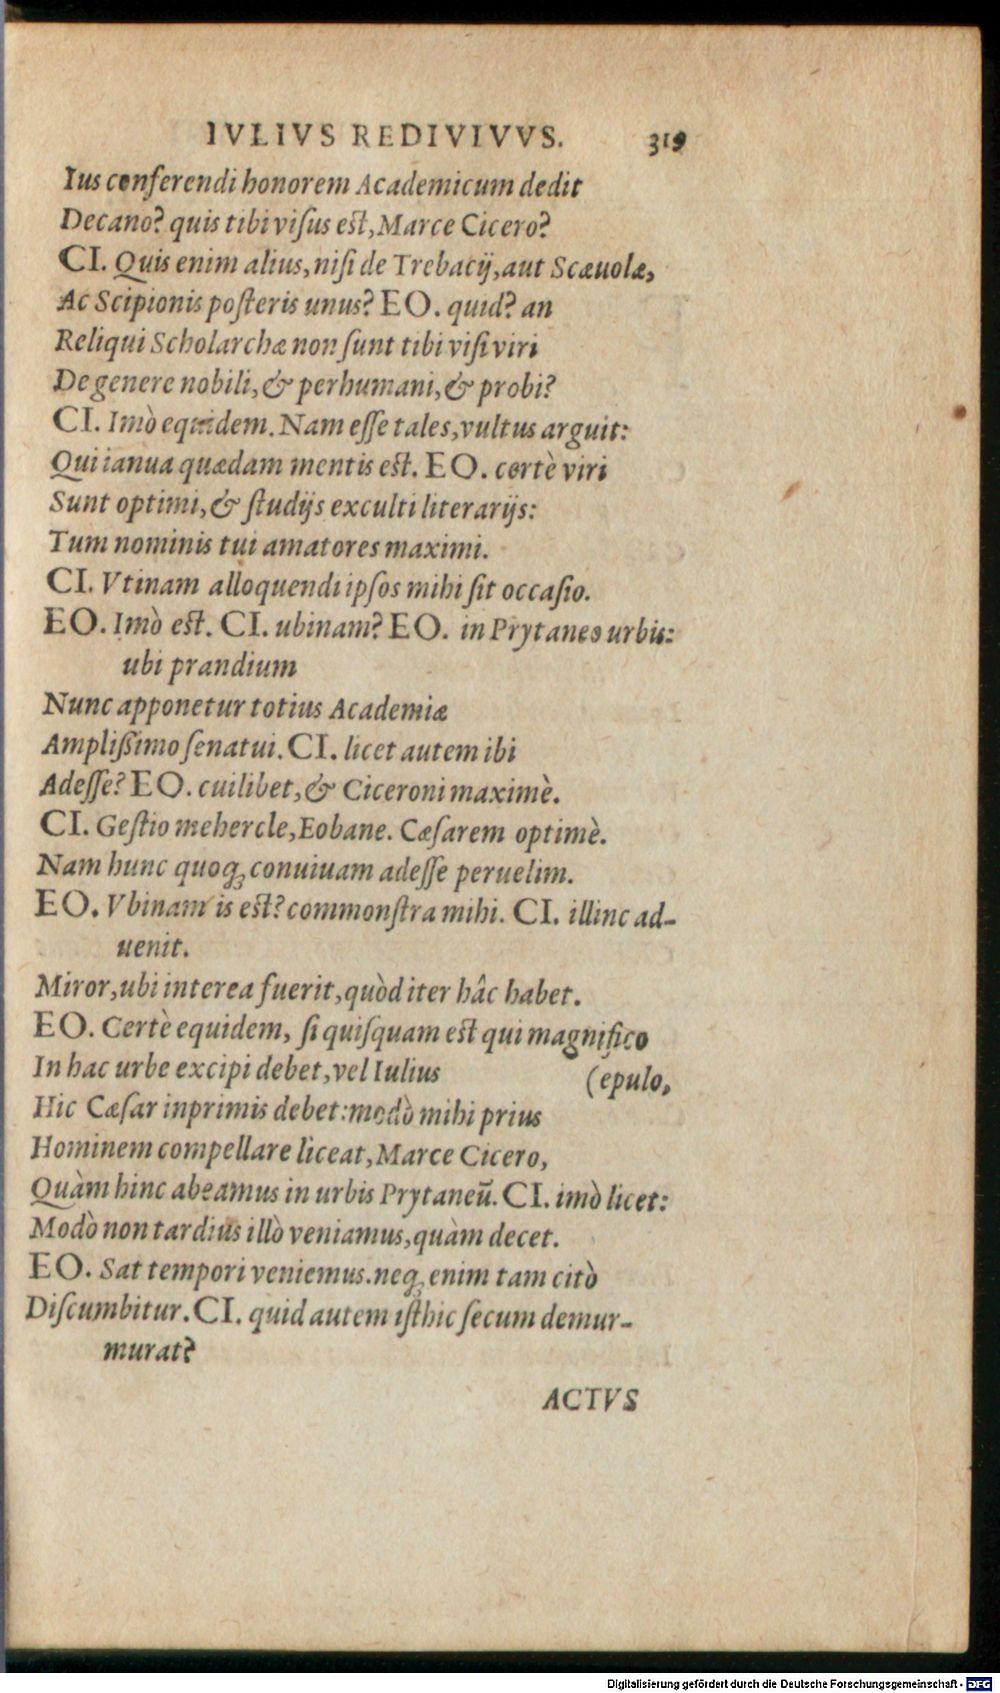 IVLIVS REDIVIVVS. 319
Ius conferendi honorem Academicum dedit
Decano? quis tibi viſus eſt, Marce Cicero?
CI. Quis enim alius, niſi de Trebacij, aut Scæuolæ,
Ac Scipionis poſteris unus? EO. quid? an
Reliqui Scholarchæ non ſunt tibi viſi viri
De genere nobili, & perhumani, & probi?
CI. Imò equidem. Nam eſſe tales, vultus arguit:
Qui ianua quædam mentis eſt. EO. certè viri
Sunt optimi, & ſtudijs exculti literarijs:
Tum nominis tui amatores maximi.
CI. Vtinam alloquendi ipſos mihi ſit occaſio.
EO. Imò eſt. CI. ubinam? EO. in Prytaneo urbis:
ubi prandium
Nunc apponetur totius Academiæ
Ampliſſimo ſenatui. CI. licet autem ibi
Adeſſe? EO. cuilibet, & Ciceroni maximè.
CI. Geſtio mehercle, Eobane. Cæſarem optimè.
Nam hunc quoq; conuiuam adeſſe peruelim.
EO. Vbinam is eſt? commonſtra mihi. CI. illinc ad-
uenit.
Miror, ubi interea fuerit, quòd iter hâc habet.
EO. Certè equidem, ſi quiſquam eſt qui magnifico
In hac urbe excipi debet, vel Iulius (epulo,
Hic Cæſar inprimis debet: modò mihi prius
Hominem compellare liceat, Marce Cicero,
Quàm hinc abeamus in urbis Prytaneū. CI. imò licet:
Modò non tardius illò veniamus, quàm decet.
EO. Sat tempori veniemus. neq; enim tam citò
Diſcumbitur. CI. quid autem iſthic ſecum demur-
murat?
ACTVS
Digitalisierung gefördert durch die Deutsche Forschungsgemeinschaft - DFG